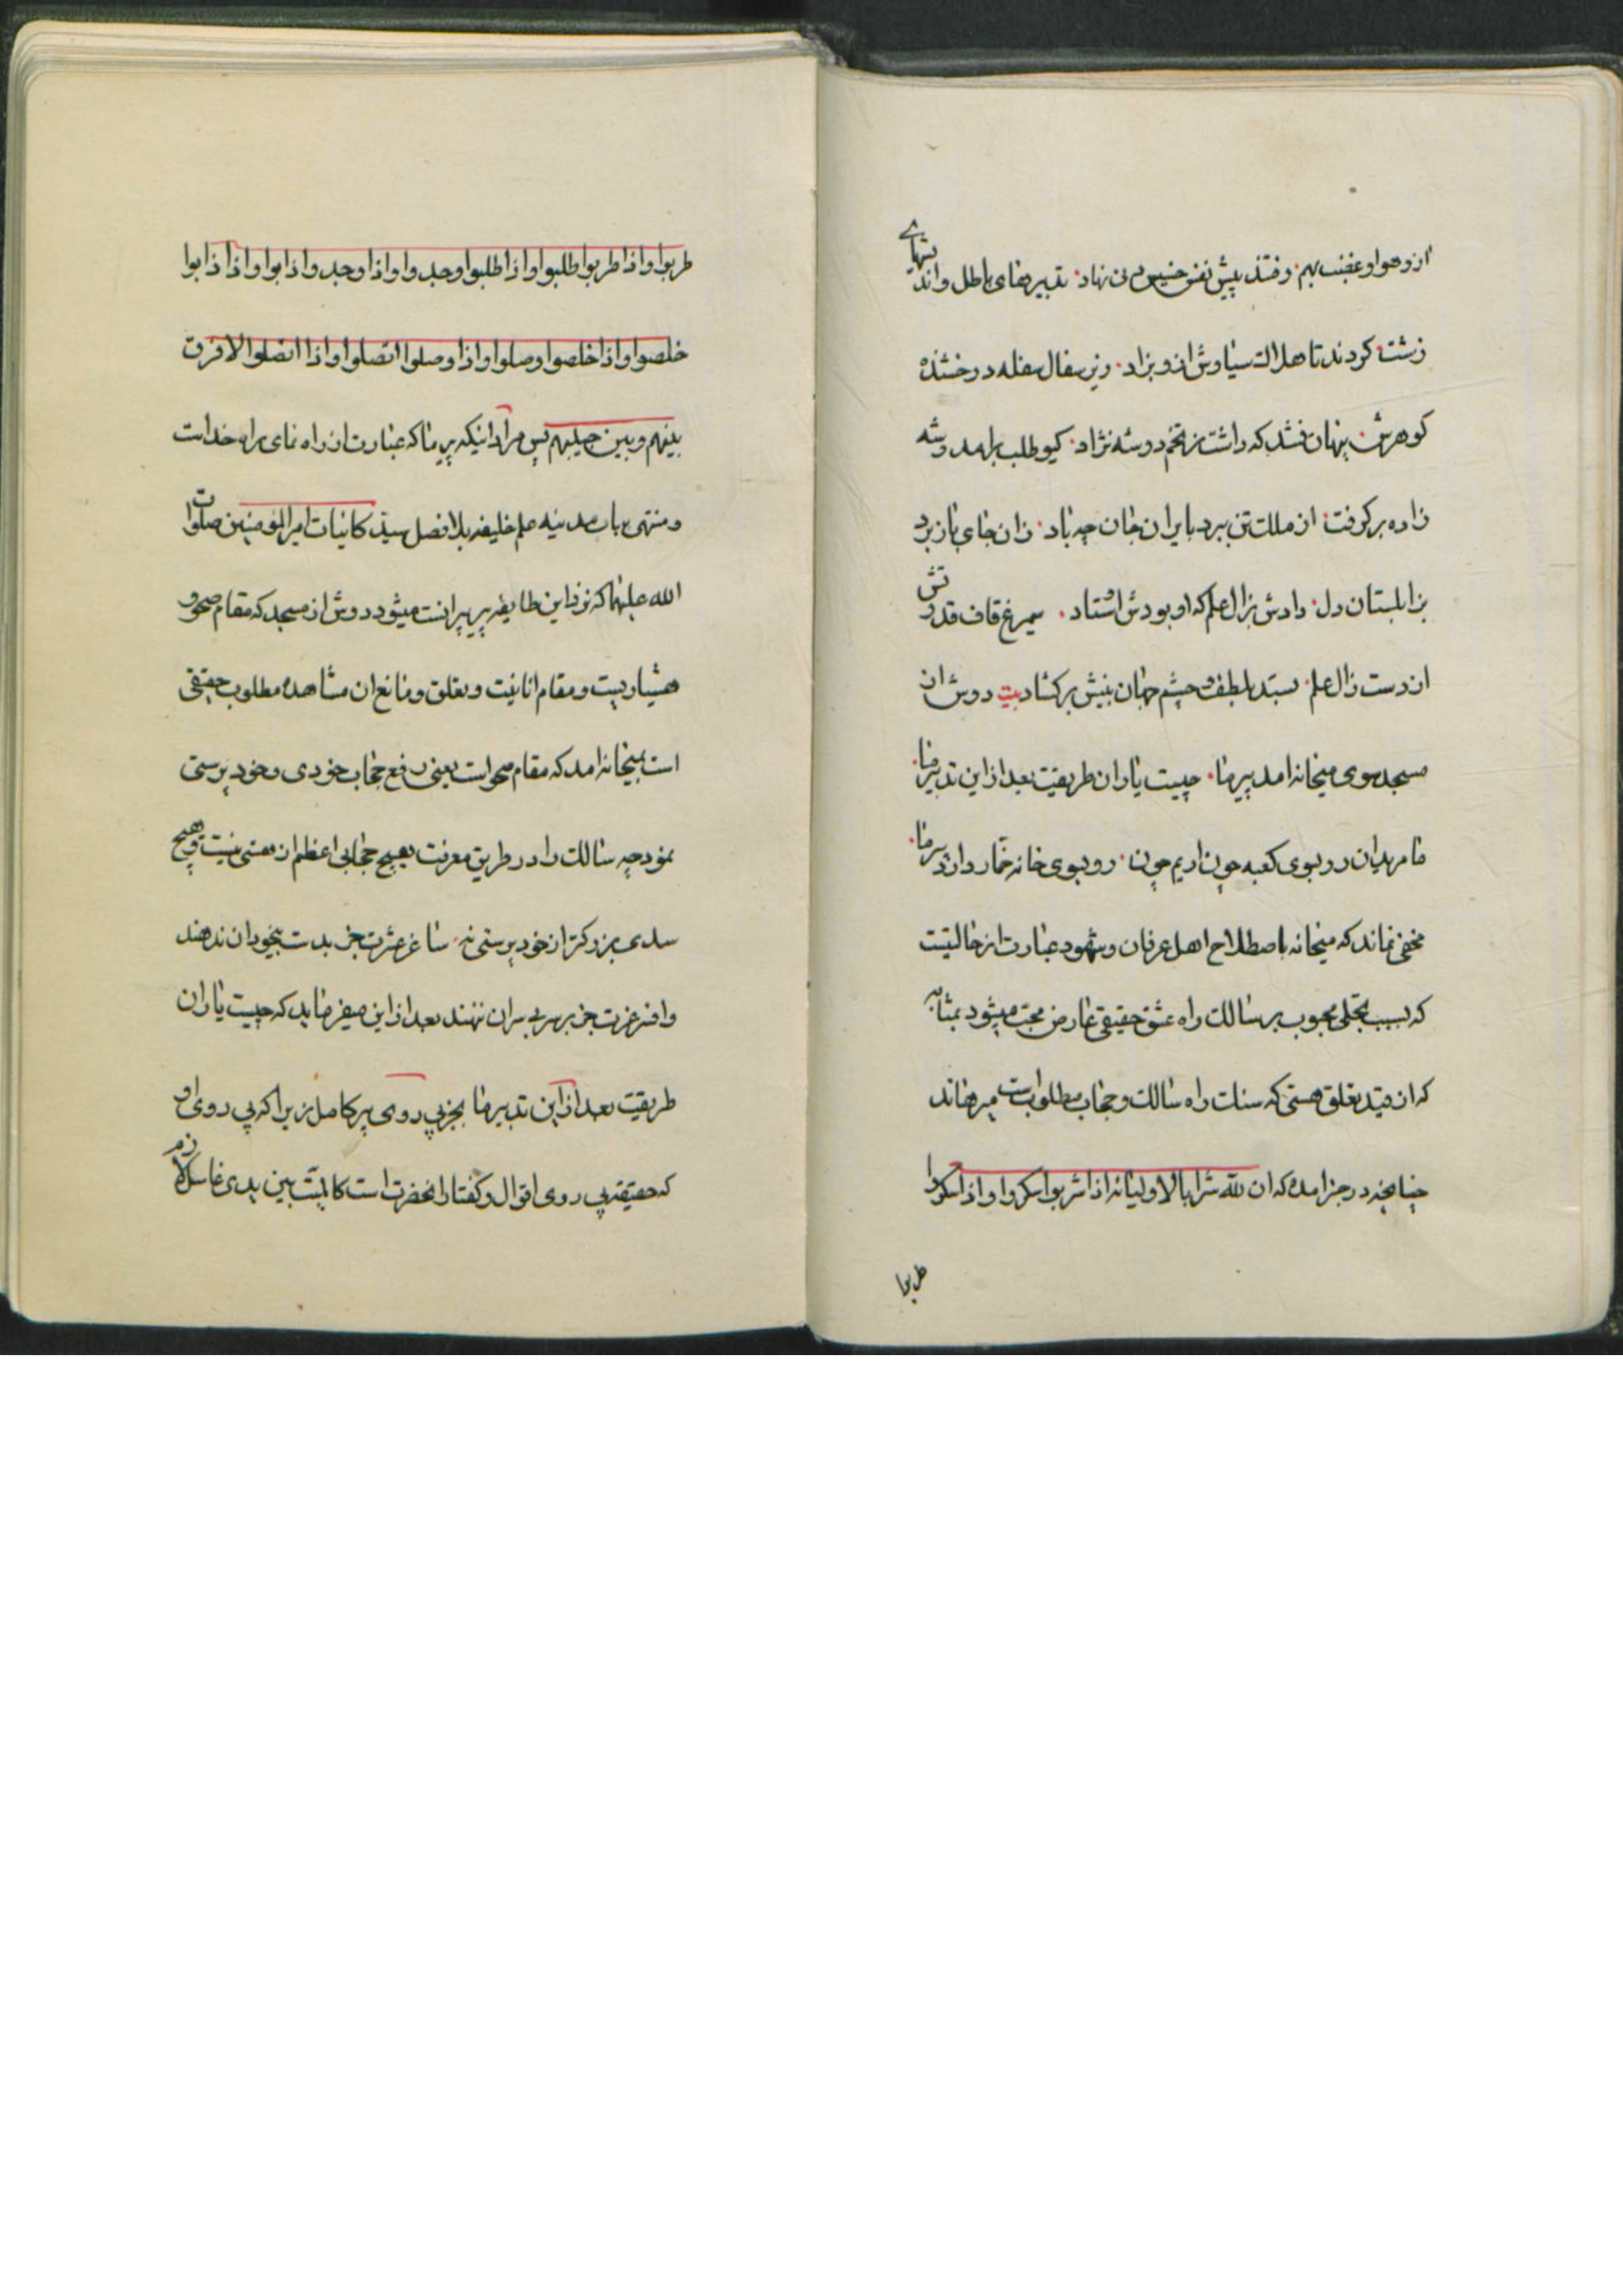 از و هوا و غضب بهم رفتند پیش نفس خسیس دنی نهاد تدبیرهای باطل و اندیشهای
زشت کردند تا هلاک سیاوش از و بزاد وز سفال سفله درخشنده
گوهرش پنهان نشد که داشت ز تخم دو شه نژاد گیو طلب برامد و شه
زاده برگرفت از ملک تن ببرد بایران جان چه باد زان جای باز برد
بزابلستان دل دادش بزال علم که او بودش اوستاد سیمرغ قاف قدرتش
از دست زال علم بستد بلطف و چشم جهان بنیش برکشاد بیت دوش از
مسجد سوی میخانه امد پیر ما چیست یاران طریقت بعد از این تدبیر ما
ما مریدان رو بسوی کعبه چون اریم چون رو بسوی خانه خمار دارد پیر ما
مخفی نماند که میخانه باصطلاح اهل عرفان و شهود عبارت از حالتیست
که بسبب تجلی محبوب بر سالک راه عشق حقیقی عارض محبت میشود بمثابه
که از قید تعلق هستی که سنک راه سالک و حجاب مطلوب است میرهاند
چنانچه در خبر امده که ان لله شرابا لاولیائه اذا شربوا سکروا و اذا سکروا
طربوا
طربوا و اذا طربوا طلبوا و اذا طلبوا وجدوا و اذا وجدوا ذابوا و اذا ذابوا
خلصوا و اذا خلصوا وصلوا و اذا وصلوا اتصلوا و اذا اتصلوا لا فرق
بینهم و بین حبیبهم پس مراد اینکه پیر ما که عبارت از راه نمای براه خداست
و منتهی بباب مدینه علم خلیفه بلافصل سید کاینات امیر المؤمنین صلوات
الله علیهما که نزد این طایفه پیر پیرانست میشود دوش از مسجد که مقام صحو و
هشیاریست و مقام انانیت و تعلق و مانع از مشاهده مطلوب حقیقی
است بمیخانه امد که مقام محو است یعنی رفع حجاب خودی و خود پرستی
نمود چه سالک را در طریق معرفت هیچ حجابی اعظم از هستی نیست و هیچ
سدی بزرکتر از خود پرستی نه ساغر عشرت جز بدست بیخودان ندهند
و افسر عزت جز بر سر بی سران ننهند بعد از این میفرماید که چیست یاران
طریقت بعد از این تدبیر ما بجز پی روی پیر کامل زیرا که پی روی او
که حقیقة پی روی اقوال و کفتار انحضرت است کالمیت بین یدی غاسل لازم